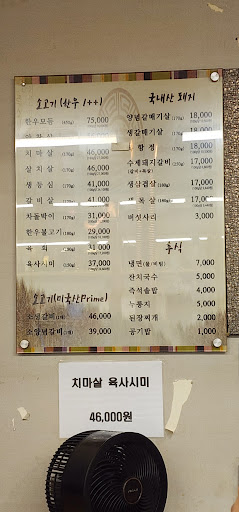 소고기 (한우 1++)
한우모듬 (450g) 75,000
치마살 46,000
살치살 46,000
생등심 41,000
갈비살 41,000
차돌박이 (170g) 31,000
한우불고기 (180g) 29,000
육회 31,000
육사시미 (150g) 37,000
소고기(미국산Prime)
46,000
소양념갈비 39,000
국내산 돼지
양념갈매기살 (170g) 18,000
생갈매기살 (170g) 18,000
18,000
수제돼지갈비 17,000
생삼겹살 17,000
17,000
버섯사리 3,000
후식
냉면(물/비빔) 7,000
잔치국수 5,000
즉석솥밥 4,000
누룽지 5,000
된장찌개 2,000
공기밥 1,000
치마살 육사시미
46,000원